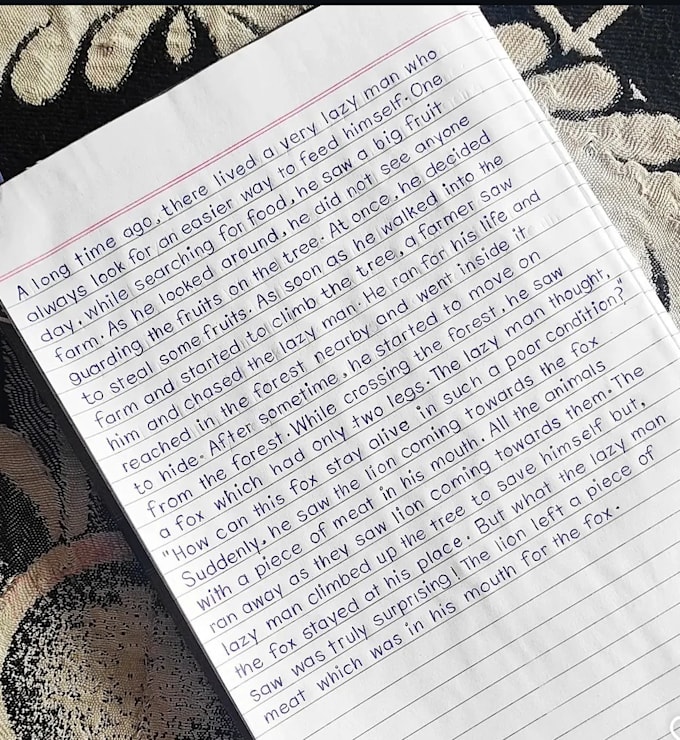 A long time ago, there lived a very lazy man who
always look for an easier way to feed himself. One
day, while searching for food, he saw a big fruit
farm. As he looked around, he did not see anyone
guarding the fruits on the tree. At once, he decided
to steal some fruits. As soon as he walked into the
farm and started to climb the tree, a farmer saw
him and chased the lazy man. He ran for his life and
reached in the forest nearby and went inside it
to hide. After sometime, he started to move on
from the forest. While crossing the forest, he saw
a fox which had only two legs. The lazy man thought,
"How can this fox stay alive in such a poor condition?"
Suddenly, he saw the lion coming towards the fox
with a piece of meat in his mouth. All the animals
ran away as they saw lion coming towards them. The
lazy man climbed up the tree to save himself but,
the fox stayed at his place. But what the lazy man
saw was truly surprising! The lion left a piece of
meat which was in his mouth for the fox.